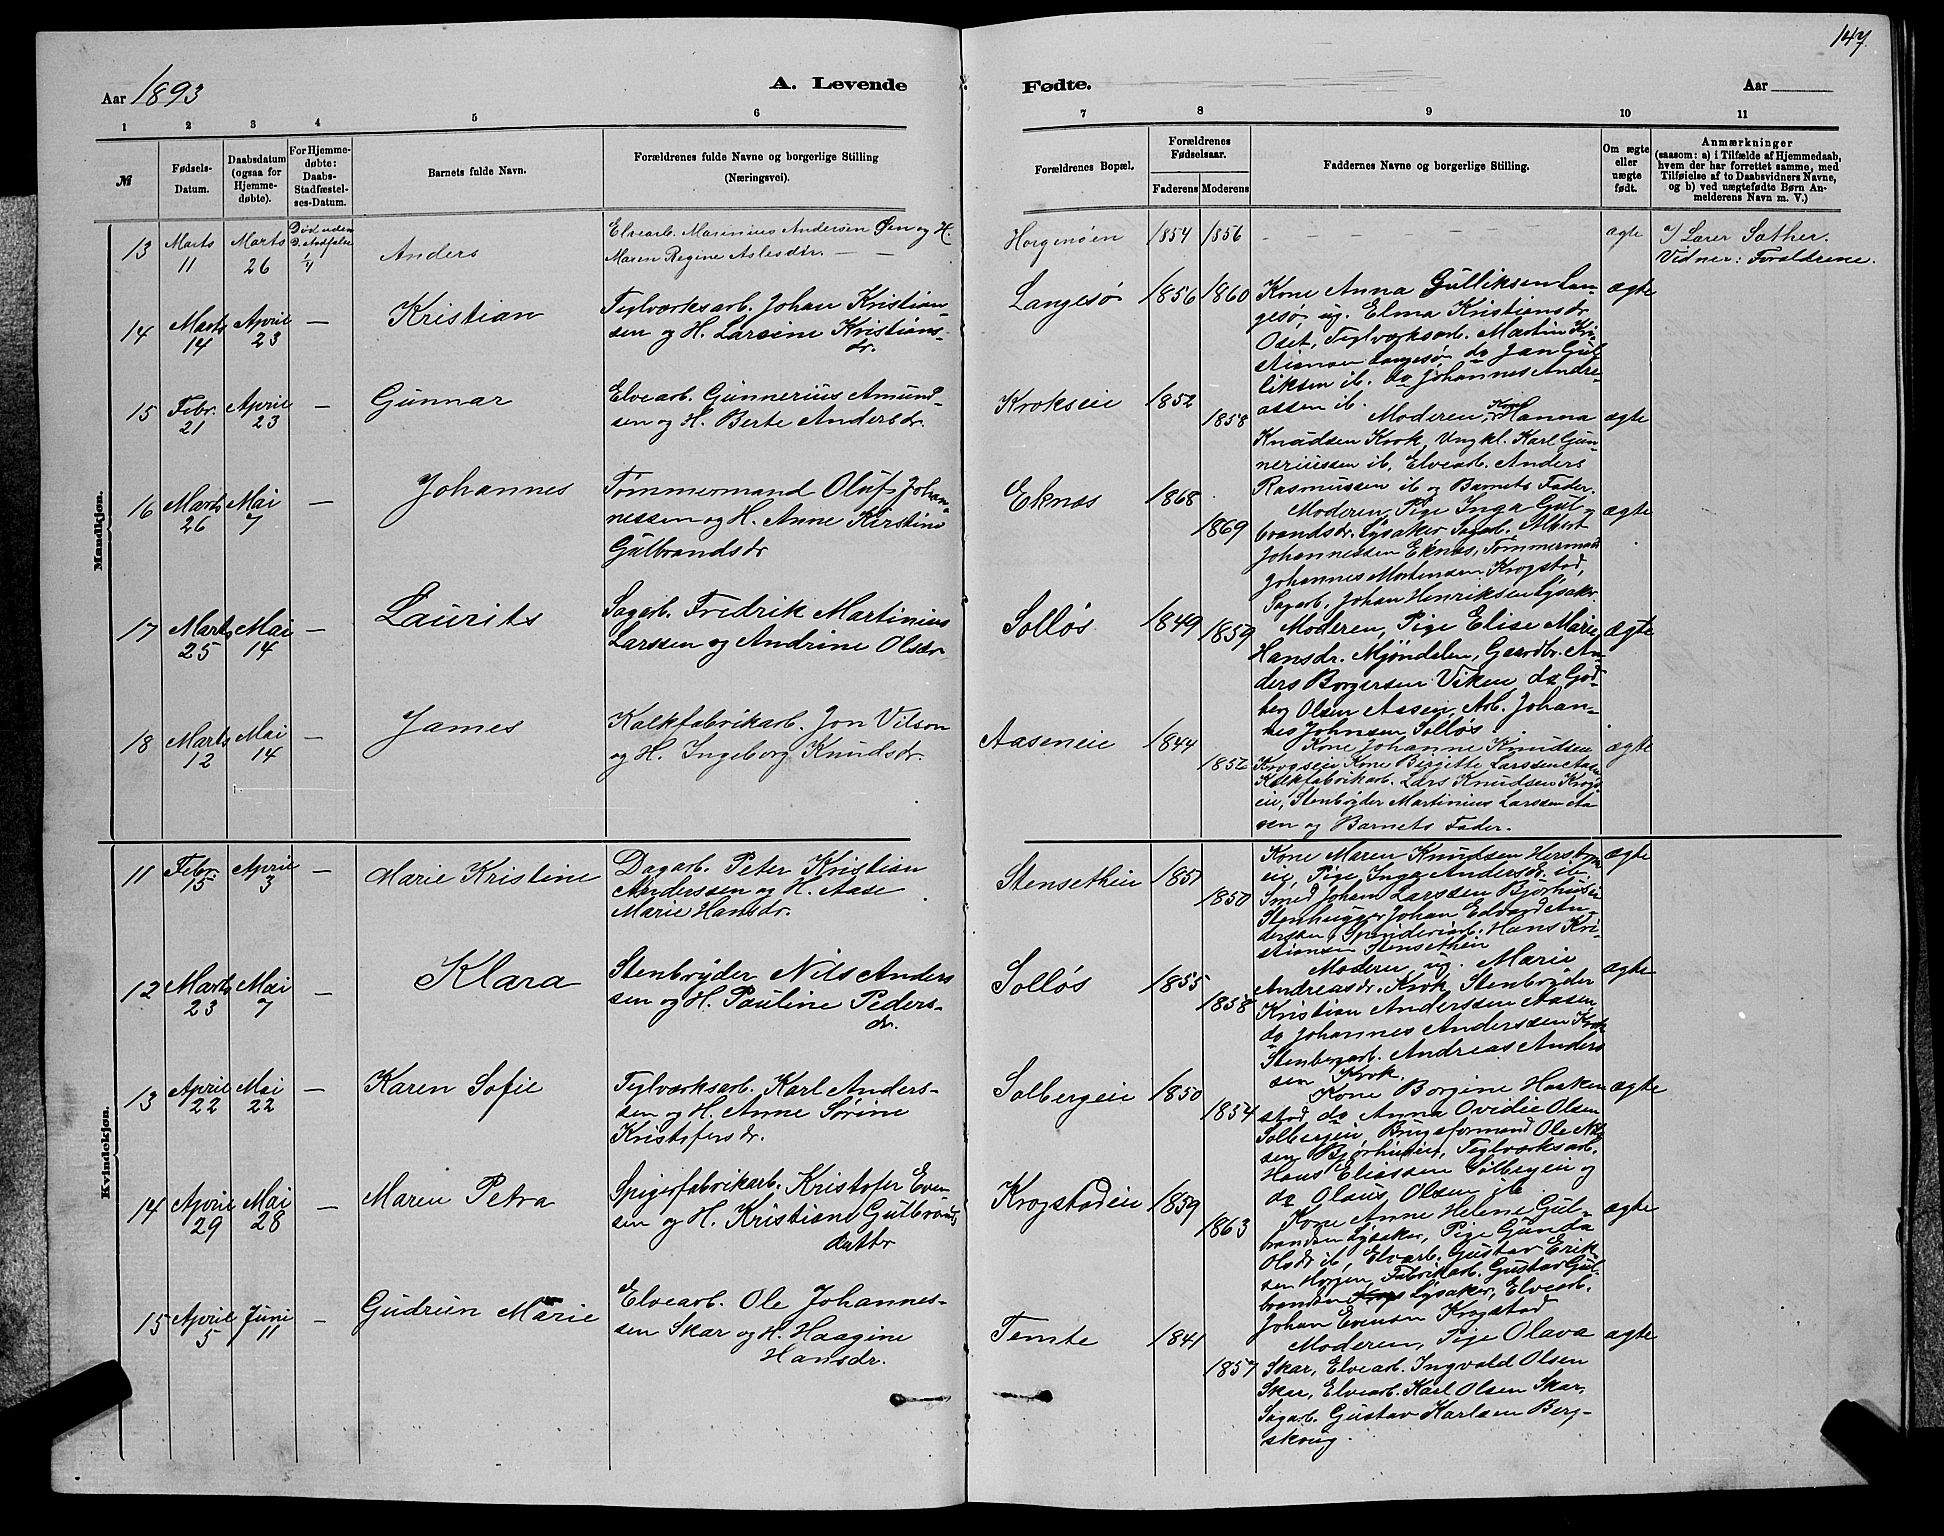 147
Aar 1893
A. Levende
Fødte.
Aar
1 2 3 4 5 6 7 8 9 10 11
№
Fødsels-
Datum.
Daabsdatum
(ogsaa for
Hjemme-
døbte).
For Hjemme-
døbte:
Daabs-
Stadfæstel-
ses-Datum.
Barnets fulde Navn.
Forældrenes fulde Navne og borgerlige Stilling
(Næringsvei).
Forældrenes Bopæl.
Forældrenes
Fødselsaar.
Faderens Moderens
Faddernes Navne og borgerlige Stilling.
Om ægte
eller
uægte
født.
Anmærkninger
(saasom: a) i Tilfælde af Hjemmedaab,
hvem der har forrettet samme, med
Tilføielse af to Daabsvidners Navne,
og b) ved uægtefødte Børn An-
melderens Navn m. V.)
Mandkjøn.
13 Marts 11 Marts 26 Død uden
Anders
Elvearb. Marinius Andersen Øen og H.
Maren Regine Aslesdtr.
Horgenøen 1854 1856
ægte
Lærer Sæther.
Vidner: Forældrene.
14 Marts 14 April 23 —
Kristian
Teglværksarb. Johan Kristian-
sen og H. Larsine Kristians-
dr.
Langesø 1856 1860
Kone Anna Gulliksen Lan-
gesø, ug. Elma Kristiansdr
Oset, Teglværksarb. Martin Kri-
stiansen Langesø, do Jan Gul-
liksen ib. do Johannes Andre-
assen ib.
ægte
15 Febr. 21 April 23 —
Gunnar
Elvearb. Gunnerius Amund-
sen og H. Berte Andersdr.
Krokseie 1852 1858
Moderen, Kone Hanna
Knudsen Krok, Ungkl. Karl Gun-
neriussen ib, Elvearb. Anders
Rasmussen ib og Barnets Fader.
ægte
16 Marts 26 Mai 7 —
Johannes
Tømmermand Oluf Johan-
nessen og H. Anne Kirstine
Gulbrandsdr
Eknæs 1868 1869
Moderen, Pige Inga Gul-
brandsdr. Lysaker, Sagarb. Albert
Johannessen Eknæs, Tømmermand
Johannes Mortensen Krogstad,
Sagarb. Johan Henriksen Lysaker
ægte
17 Marts 25 Mai 14 —
Laurits
Sagarb. Fredrik Martinius
Larssen og Andrine Olsdr.
Solløs 1849 1859
Moderen, Pige Elise Marie
Hansdr. Mjøndalen, Gaardbr. An-
ders Borgersen Viken do God-
berg Olsen Aasen, Arb. Johan-
nes Johnsen Solløs.
ægte
18 Marts 12 Mai 14 —
James
Kalkfabrikarb. Jon Vilson
og H. Ingeborg Knudsdr.
Aaseneie 1844 1852
Kone Johanne Knudsen
Krogseie Kone Birgitte Larssen Aasen
Kalkfabrikarb. Lars Knudsen Krogs-
eie, Stenbryder Martinius Larssen Aa-
sen og Barnets Fader.
ægte
Kvindekjøn.
11 Febr. 15 April 3 —
Marie Kristine
Dagarb. Peter Kristian
Anderssen og H. Aase
Marie Hansdr.
Stensetheie 1851 1850
Kone Maren Knudsen
eie, Pige Inga Andersdr. ib.
Smed Johan Larssen Bjørhuseie
Stenhugger Johan Edvard An-
dersen, Spinderiarb. Hans Kri-
stiansen Stensetheie
ægte
12 Marts 23 Mai 7 —
Klara
Stenbryder Nils Anders
sen og H. Pauline Peders-
dr.
Solløs 1855 1858
Moderen, ug. Marie
Andreasdr. Krok Stenbryder
Kristian Anderssen Aasen
do Johannes Anderssen Krok
Stenbergarb. Andreas Anders
sen Krok.
ægte
13 April 22 Mai 22 —
Karen Sofie
Teglværksarb. Karl Anders-
sen og H. Anne Sørine
Kristofersdr.
Solbergeie 1850 1854
Kone Borgine Haaken
stad do Anna Ovidie Olsen
Solbergeie, Brugsformand Ole Nil-
sen Bjørhuseie, Teglværksarb.
Hans Eliassen Solbergeie og
do Olaus Olsen ib.
ægte
14 April 29 Mai 28 —
Maren Petra
Spigerfabrikarb. Kristofer Even
sen og H. Kristiane Gulbrands
datter
Krogstadeie 1859 1863
Kone Anne Helene Gul-
brandsen Lysaker, Pige Gunda
Olsdr ib, Elvearb. Gustav Erik
sen Horgen, Fabrikarb. Gustav Gul-
brandsen Lysaker, Elvearb.
Johan Evensen Krogstad
ægte
15 April 5 Juni 11 —
Gudrun Marie
Elvearb. Ole Johannes-
sen Skar og H. Haagine
Hansdr.
Temte 1841 1857
Moderen, Pige Olava
Skar, Elvearb. Ingvald Olsen
Skar, Elvearb. Karl Olsen Skar,
Sagarb. Gustav Karlsen Berg-
skoug.
ægte